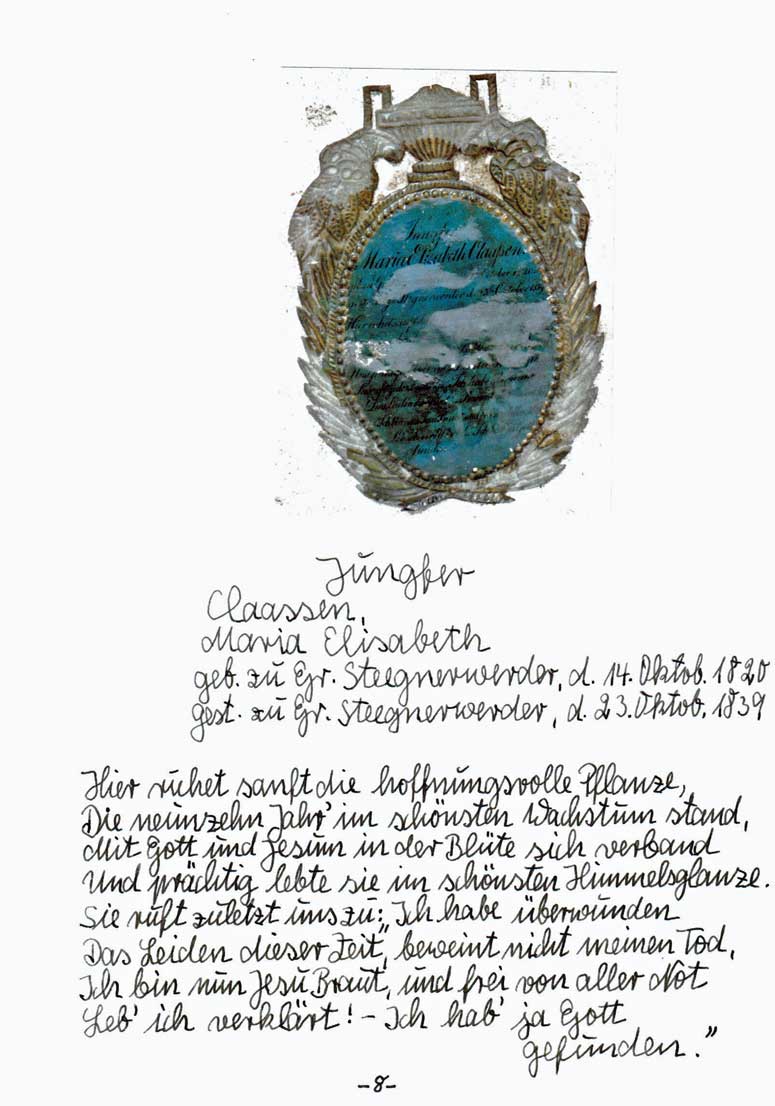 Jungfr.
Maria Elisabeth Claassen
Jungfer
Claassen,
Maria Elisabeth
geb. zu Gr. Steegnerwerder, d. 14. Oktob. 1820
gest. zu Gr. Steegnerwerder, d. 23. Oktob. 1839
Hier ruhet sanft die hoffnungsvolle Pflanze,
Die neunzehn Jahr' im schönsten Wachstum stand,
Mit Gott und Jesum in der Blüte sich verband
Und prächtig lebte sie im schönsten Himmelsglanze.
Sie ruft zuletzt uns zu: „Ich habe überwunden
Das Leiden dieser Zeit, beweint nicht meinen Tod,
Ich bin nun Jesu Braut, und frei von aller Not
Leb' ich verklärt! – Ich hab' ja Gott
gefunden."
-8-